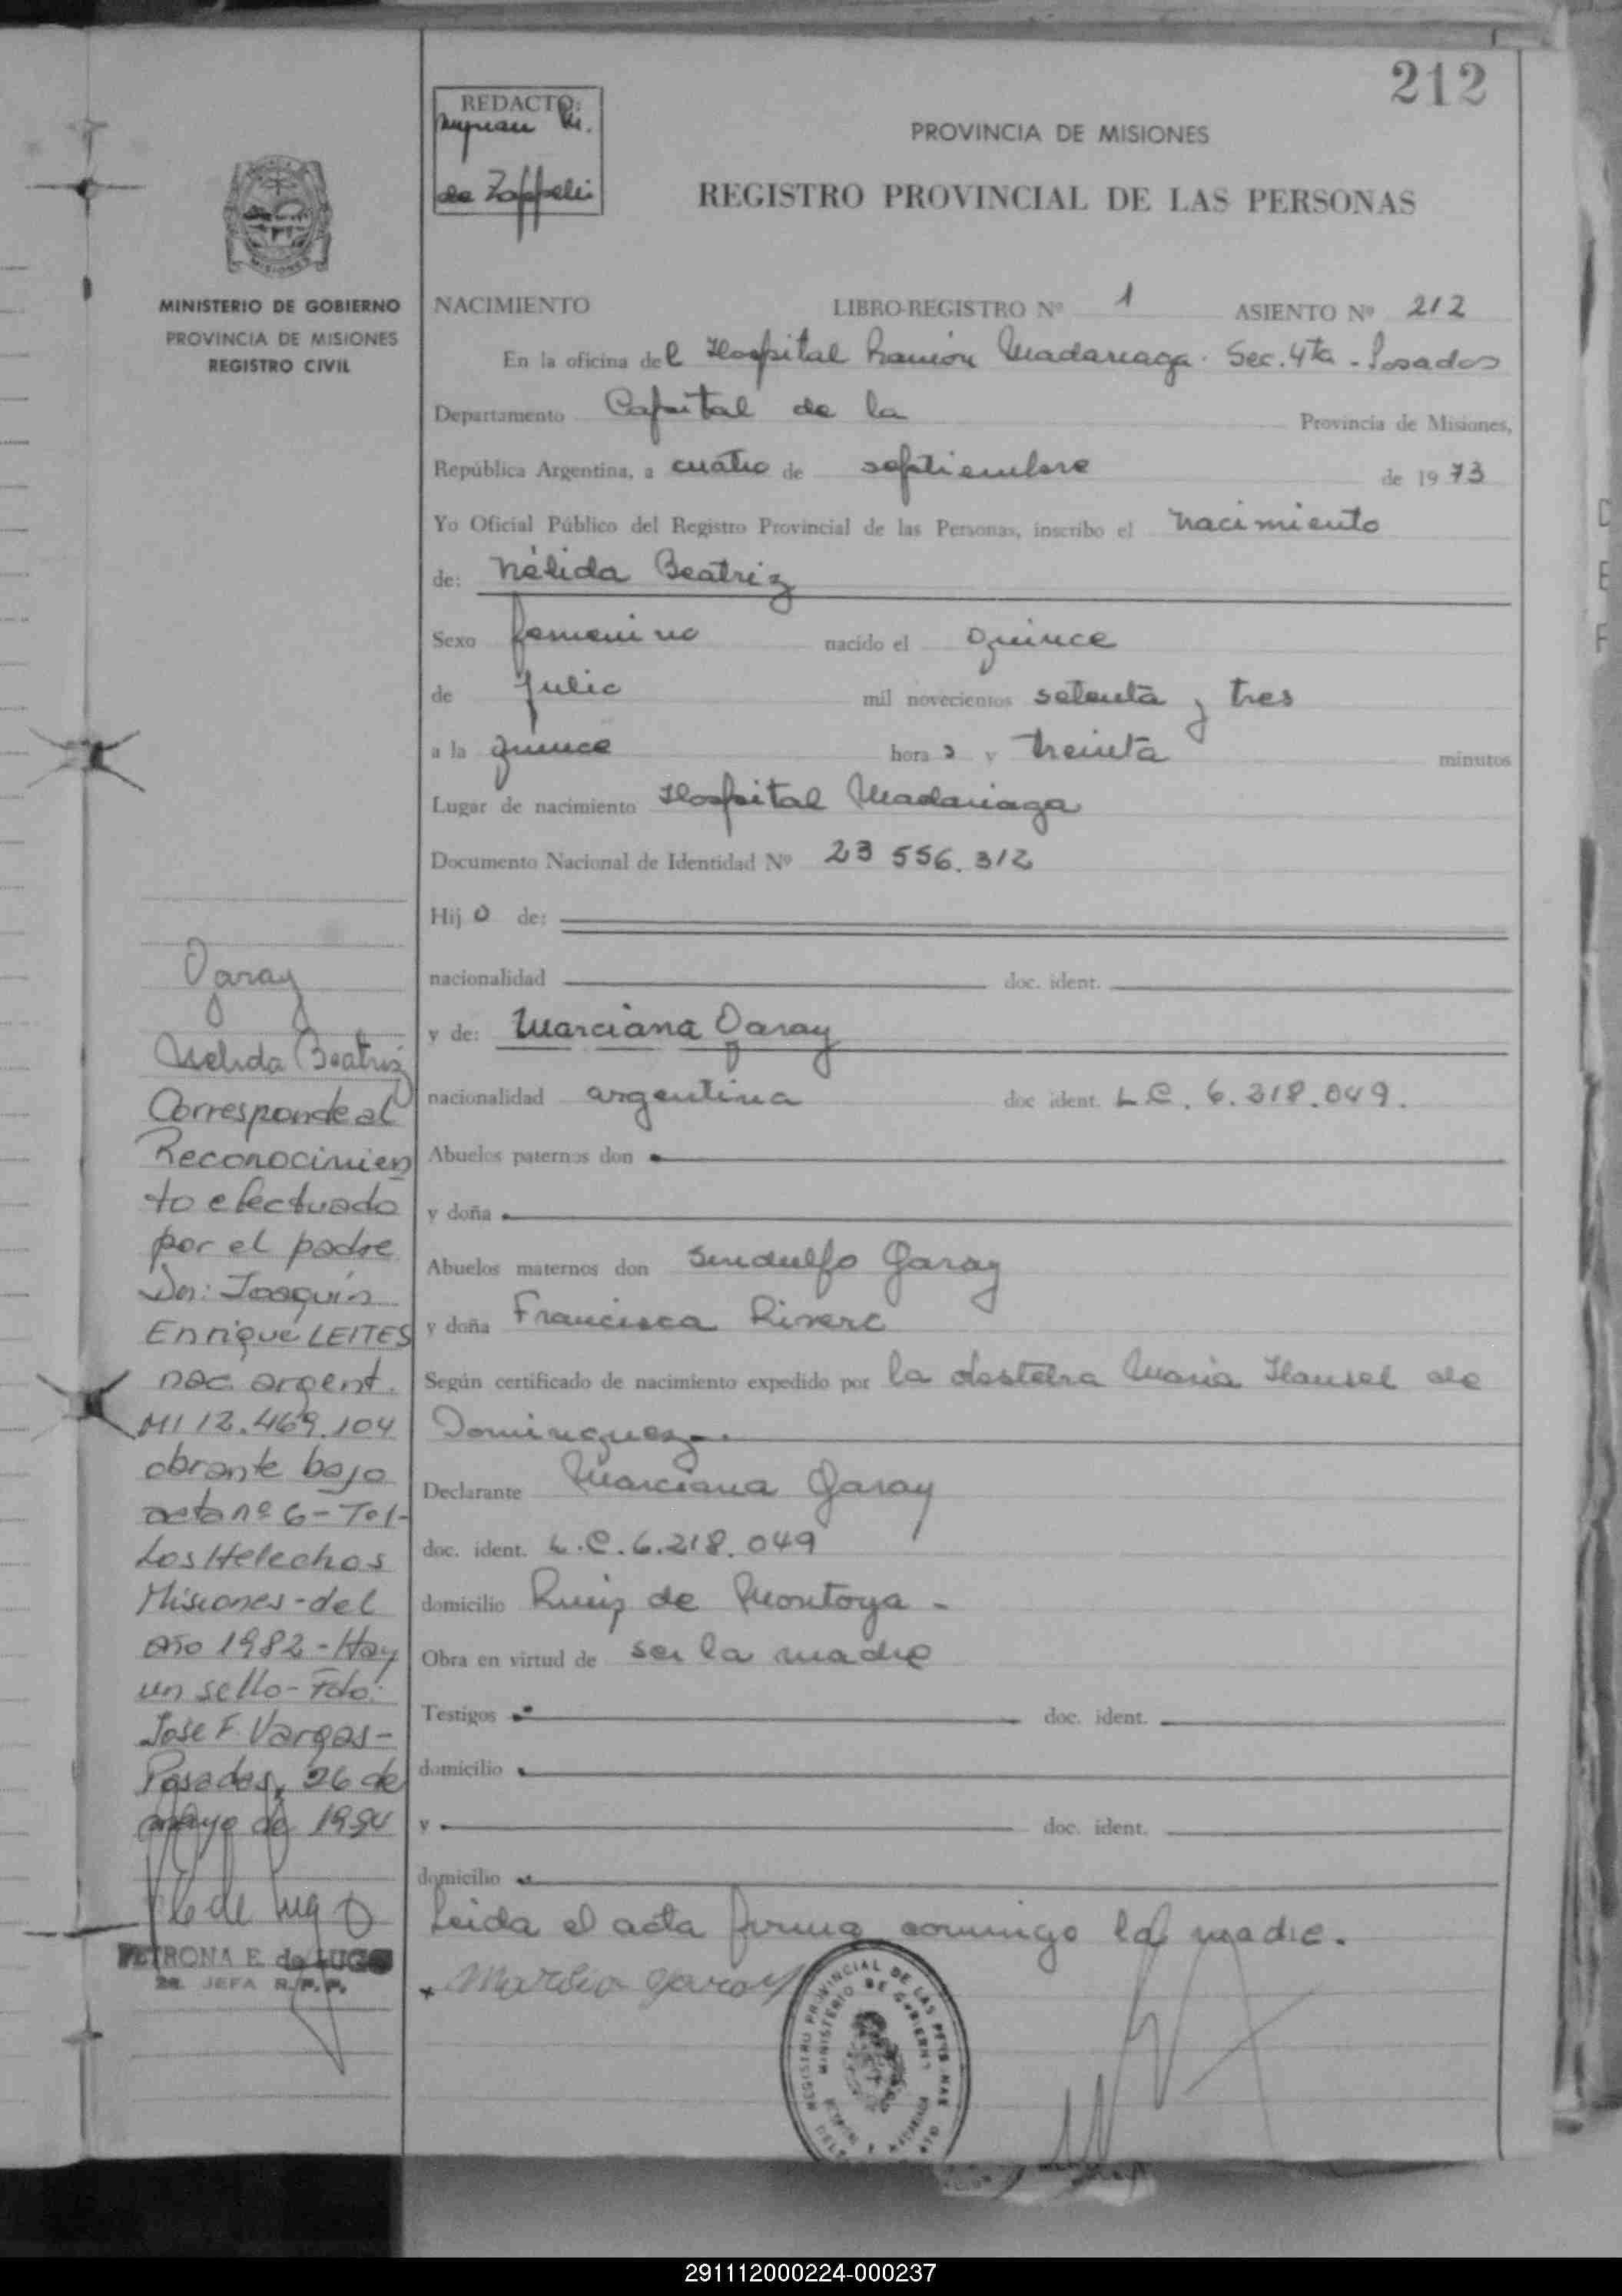 212
REDACTO:
de Zappelli
PROVINCIA DE MISIONES
REGISTRO PROVINCIAL DE LAS PERSONAS
MISIONES
MINISTERIO DE GOBIERNO
PROVINCIA DE MISIONES
REGISTRO CIVIL
NACIMIENTO LIBRO-REGISTRO Nº 1 ASIENTO Nº 212
En la oficina del Hospital Ramón Madariaga. Sec. 4ta - Posadas
Departamento Capital de la Provincia de Misiones,
República Argentina, a cuatro de septiembre de 1973
Yo Oficial Público del Registro Provincial de las Personas, inscribo el nacimiento
de: Nélida Beatriz
Sexo femenino nacido el quince
de Julio mil novecientos setenta y tres
a la quince hora s y treinta minutos
Lugar de nacimiento Hospital Madariaga
Documento Nacional de Identidad Nº 23 556.312
Hij o de:
nacionalidad doc. ident.
y de: Marciana Garay
nacionalidad argentina doc ident. L.C. 6.218.049.
Abuelos paternos don
y doña
Abuelos maternos don Sindulfo Garay
y doña Francisca Rivero
Según certificado de nacimiento expedido por la obstetra María Hansel de
Dominguez-.
Declarante Marciana Garay
doc. ident. L.C. 6.218.049
domicilio Ruiz de Montoya -
Obra en virtud de ser la madre
Testigos doc. ident.
domicilio
y doc. ident.
domicilio
Leida el acta firma conmigo la madre.
Garay
Nelida Beatriz
Corresponde al
Reconocimien
to efectuado
por el padre
Dn: Joaquín
Enrique LEITES
nac. argent.
MI 12.469.104
obrante bajo
acta nº 6 - Tº 1-
Los Helechos
Misiones - del
año 1982 - Hay
un sello - Fdo:
José F. Vargas -
Posadas, 26 de
mayo de 1994
PETRONA E. de LUGO
2a. JEFA R.P.P.
REGISTRO PROVINCIAL DE LAS PERSONAS
MINISTERIO DE GOBIERNO
291112000224-000237